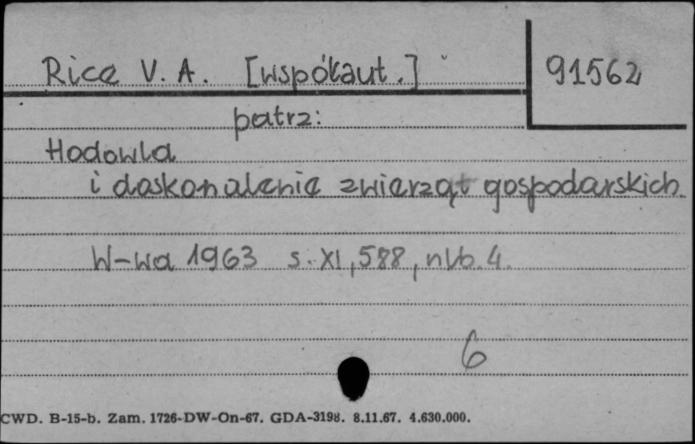 Rice V. A. [współaut.] 91562
patrz:
Hodowla
i doskonalenie zwierząt gospodarskich
W-wa 1963 s. XI, 588, nlb. 4.
6
CWD. B-15-b. Zam. 1726-DW-On-67. GDA-3198. 8.11.67. 4.630.000.